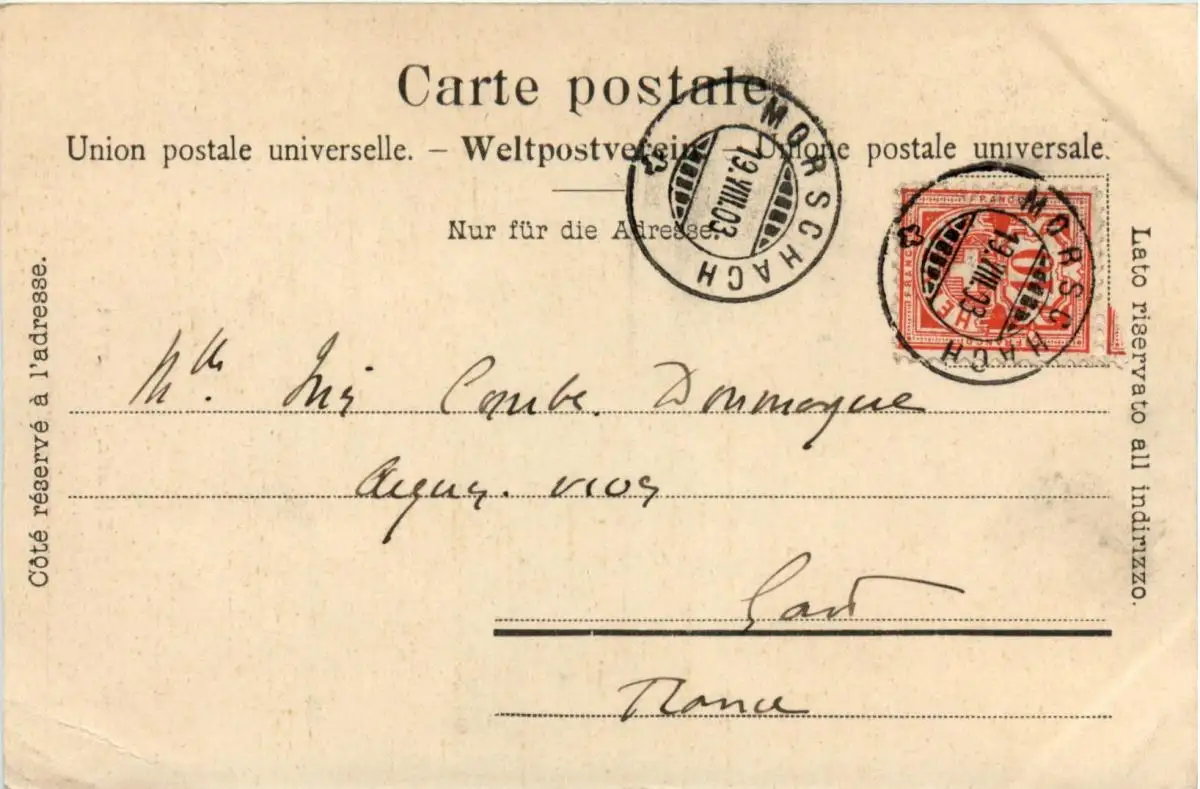 Carte postale.
Union postale universelle. – Weltpostverein – Unione postale universale.
Nur für die Adresse.
Côté réservé à l'adresse.
Lato riservato all indirizzo.
MORSCHACH
19.VIII.03.
FRANCO
HE
10
MORSCHACH
19.VIII.03
Mlle Combe. Donmergue
Aigues. vives
Gard
France